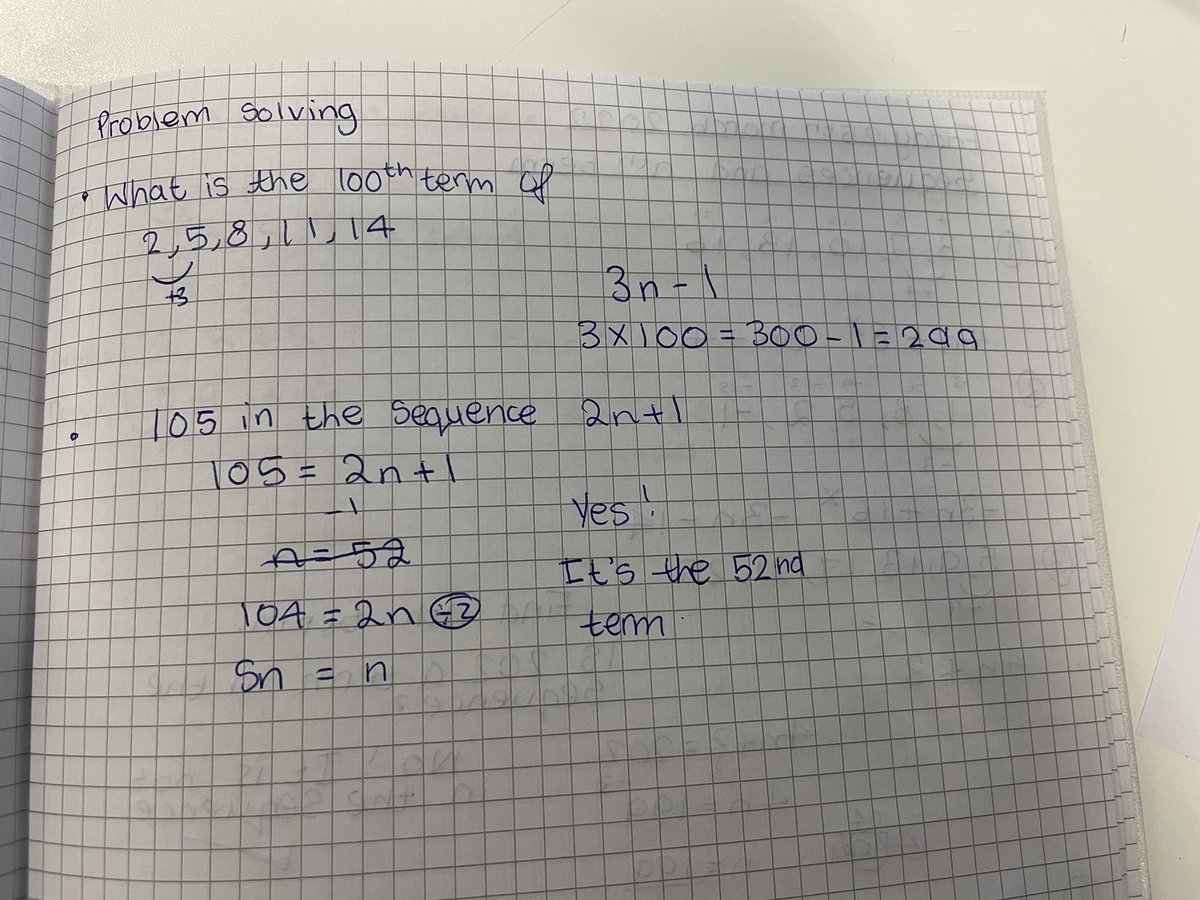 Problem Solving
• What is the 100th term of
2, 5, 8, 11, 14
+3
3n - 1
3 × 100 = 300 - 1 = 299
• 105 in the Sequence 2n+1
105 = 2n + 1
-1
n = 52
104 = 2n ÷2
Sn = n
Yes!
It's the 52nd
term.